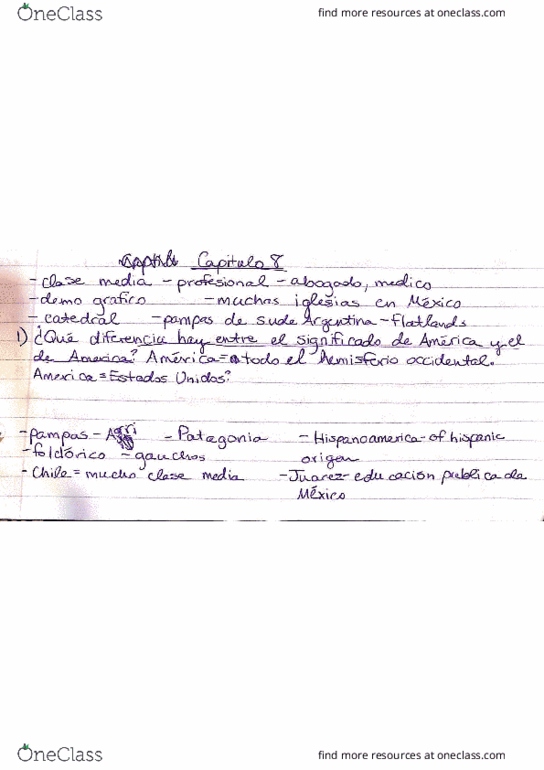 OneClass
find more resources at oneclass.com
Capitulo 8
-clase media -profesional -abogado, medico
-demo grafico -muchas iglesias en México
-catedral -pampas de sude Argentina -flatlands
1) ¿Qué diferencia hay entre el significado de América y el
de America? América= todo el hemisferio occidental.
America=Estados Unidos?
-pampas - Agri -Patagonia -Hispanoamerica-of hispanic
origen
-folclórico -gauchos
-Chile=mucho clase media -Juarez-educación publica de
México
OneClass
find more resources at oneclass.com